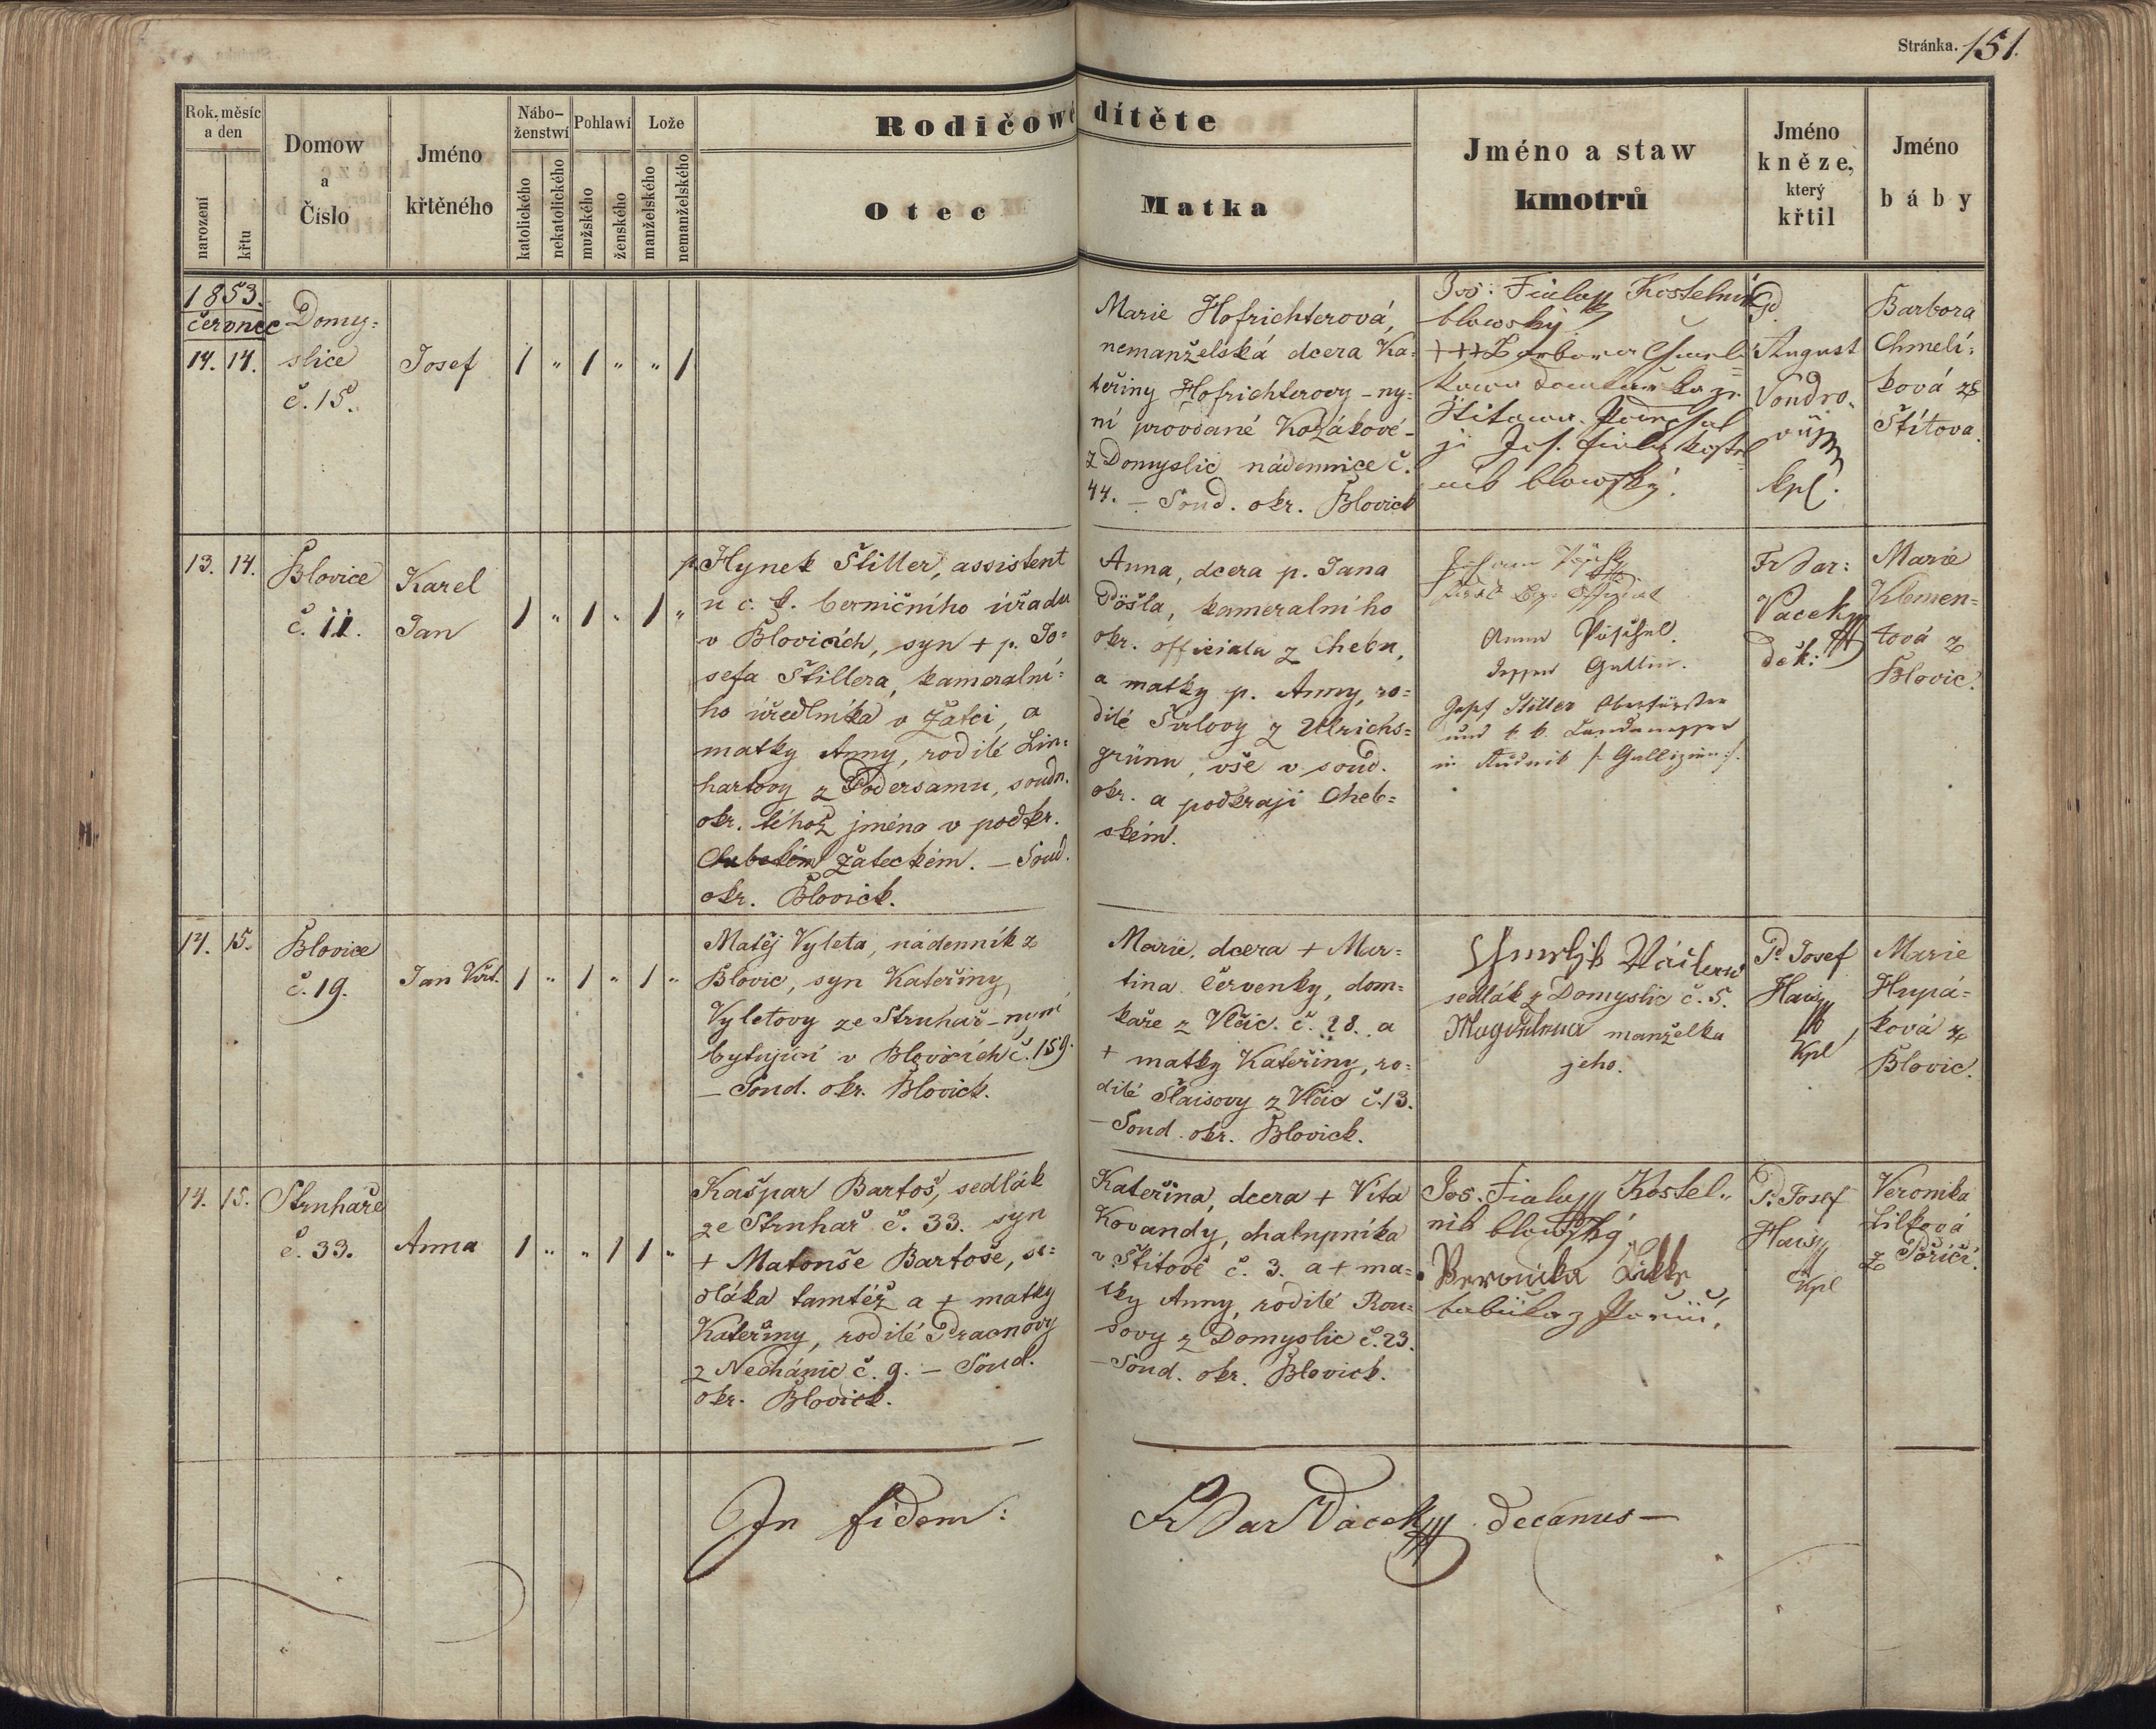 Stránka. 151.
Rok, měsíc a den
narození
křtu
Domow a Číslo
Jméno křtěného
Nábo-ženstwí
katolického
nekatolického
Pohlawí
mužského
ženského
Lože
manželského
nemanželského
Rodičowé dítěte
Otec
Matka
Jméno a staw kmotrů
Jméno kněze, který křtil
Jméno báby
1853.
červnec
14. 14.
Domy-
slice
č. 15.
Josef
1 " 1 " " 1
Marie Hofrichterová,
nemanželská dcera Ka-
teřiny Hofrichterovy - ny-
ní provdané Kozákové -
z Domyslic nádennice č.
44. - Soud. okr. Blovick
Jos. Fiala Kostelník
blowský.
+++ Barbora
Štitowa. Podepsal
ji Jos. Fiala kostel
nik blowský.
P.
August
Vondro-
kpl.
Barbora
Chmelí-
ková ze
Štítova.
13. 14.
Blovice
č. 11.
Karel
Jan
1 " 1 " 1 "
p. Hynek Štiller, assistent
u c. k. berničního úřadu
v Blovicích, syn + p. Jo-
sefa Štillera, kameralní-
ho úředlníka v Žatci, a
matky Anny, rodilé Lin-
hartovy z Podersamu, soudn.
okr. téhož jména v podkr.
Chebském Žateckém. - Soud.
okr. Blovick.
Anna, dcera p. Jana
Pöšla, kameralního
okr. officiala z Chebu,
a matky p. Anny, ro-
dilé Širlovy z Ullrichs-
grünu, vše v soud.
okr. a podkraji Cheb-
ském.
Anna Pöschel.
Josef Stiller Oberförster
und k. k.
in Rudnik /: Gallizien :/.
Fr Bar:
Vacek
děk:
Marie
Klimen-
tová z
Blovic.
14. 15.
Blovice
č. 19.
Jan Křt.
1 " 1 " 1 "
Matěj Vyleta, nádenník z
Blovic, syn Kateřiny
Vyletovy ze Struhař - nyní
bytující v Blovicích č. 159.
- Soud. okr. Blovick.
Marie, dcera + Mar-
tina Červenky, dom-
kaře z Vlčic č. 28. a
+ matky Kateřiny, ro-
dilé Šlaisovy z Vlčic č. 13.
- Soud. okr. Blovick.
Chmeljk Wáclaw
sedlák z Domyslic č. 5.
Magdalena manželka
jeho.
P. Josef
Hais
Kpl
Marie
Hupá-
ková z
Blovic.
14. 15.
Struhaře
č. 33.
Anna
1 " " 1 1 "
Kašpar Bartoš, sedlák
ze Struhař č. 33. syn
+ Matouše Bartoše, se-
dláka tamtéž a + matky
Kateřiny, rodilé Pracnovy
z Nechánic č. 9. - Soud.
okr. Blovick.
Kateřina, dcera + Víta
Kovandy, chalupníka
v Štítově č. 3. a + ma-
tky Anny, rodilé Rou-
sovy z Domyslic č. 23.
- Soud. okr. Blovick.
Jos. Fiala Kostel-
nik blowský
Veronika Lilk
babička z Poříčí
P. Josef
Hais
Kpl
Veronika
Lilková
z Poříčí.
In fidem:
Fr Bar Vacek decanus -